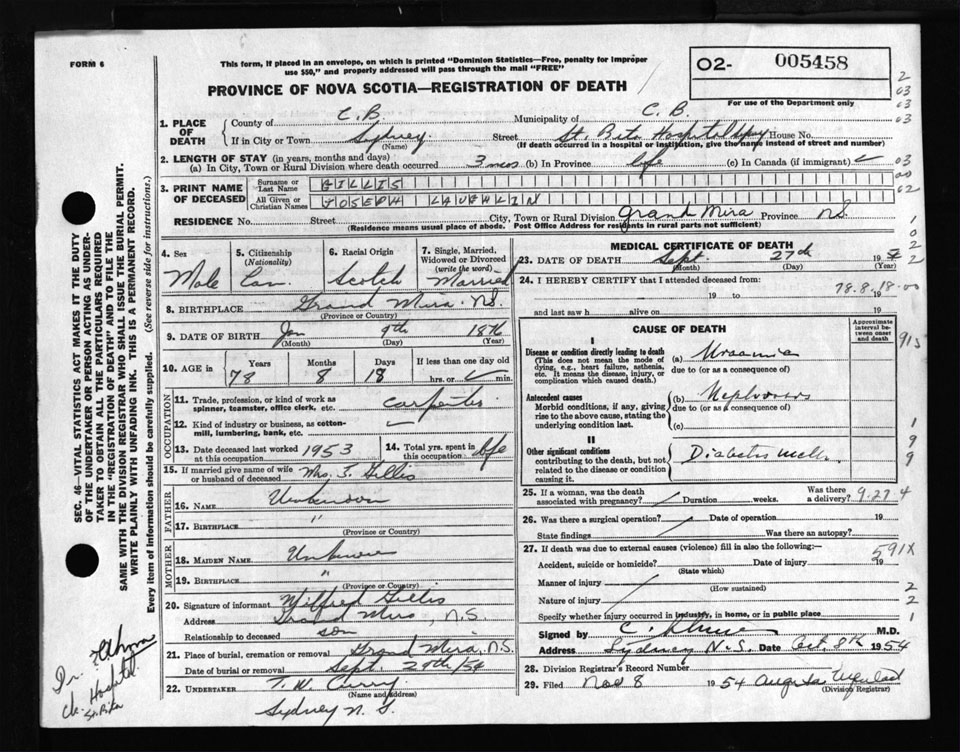 FORM 6
This form, if placed in an envelope, on which is printed "Dominion Statistics—Free, penalty for improper
use $50," and properly addressed will pass through the mail "FREE"
O2- 005458
For use of the Department only
PROVINCE OF NOVA SCOTIA—REGISTRATION OF DEATH
1. PLACE OF DEATH County of C.B. Municipality of C.B.
If in City or Town Sydney (Name) Street St. Rita Hospital House No.
(If death occurred in a hospital or institution, give the name instead of street and number)
2. LENGTH OF STAY (in years, months and days)
(a) In City, Town or Rural Division where death occurred 3 mos (b) In Province life (c) In Canada (if immigrant)
3. PRINT NAME OF DECEASED Surname or Last Name GILLIS
All Given or Christian Names JOSEPH LAUGHLIN
RESIDENCE No. Street City, Town or Rural Division Grand Mira Province N.S.
(Residence means usual place of abode. Post Office Address for residents in rural parts not sufficient)
4. Sex Male
5. Citizenship (Nationality) Can.
6. Racial Origin Scotch
7. Single, Married, Widowed or Divorced (write the word) Married
8. BIRTHPLACE Grand Mira N.S.
(Province or Country)
9. DATE OF BIRTH Jan 9th 1876
(Month) (Day) (Year)
10. AGE in Years Months Days If less than one day old
78 8 18 hrs. or min.
OCCUPATION
11. Trade, profession, or kind of work as spinner, teamster, office clerk, etc. carpenter
12. Kind of industry or business, as cotton-mill, lumbering, bank, etc.
13. Date deceased last worked at this occupation 1953
14. Total yrs. spent in this occupation life
15. If married give name of wife or husband of deceased Mrs. J. Gillis
FATHER
16. NAME Unknown
17. BIRTHPLACE "
(Province or Country)
MOTHER
18. MAIDEN NAME Unknown
19. BIRTHPLACE "
(Province or Country)
20. Signature of informant Wilfred Gillis
Address Grand Mira, N.S.
Relationship to deceased son
21. Place of burial, cremation or removal Grand Mira, N.S.
Date of burial or removal Sept. 29th/54
22. UNDERTAKER T. W. Curry
(Name and Address)
Sydney N. S.
MEDICAL CERTIFICATE OF DEATH
23. DATE OF DEATH Sept. 27th 19
(Month) (Day) (Year)
24. I HEREBY CERTIFY that I attended deceased from:
78.8.18.00
19 to 19
and last saw h alive on 19
CAUSE OF DEATH
Approximate interval between onset and death
I
Disease or condition directly leading to death
(This does not mean the mode of dying, e.g., heart failure, asthenia, etc. It means the disease, injury, or complication which caused death.)
(a) Uraemia
due to (or as a consequence of)
Antecedent causes
Morbid conditions, if any, giving rise to the above cause, stating the underlying condition last.
(b) Nephrosis
due to (or as a consequence of)
(c)
II
Other significant conditions
contributing to the death, but not related to the disease or condition causing it.
Diabetes mell.
25. If a woman, was the death associated with pregnancy? Duration weeks. Was there a delivery?
9.27.4
26. Was there a surgical operation? Date of operation 19
State findings Was there an autopsy?
27. If death was due to external causes (violence) fill in also the following:—
591X
Accident, suicide or homicide? Date of injury 19
(State which)
Manner of injury
(How sustained)
Nature of injury
Specify whether injury occurred in industry, in home, or in public place
Signed by M.D.
Address Sydney N.S. Date Oct. 1954
28. Division Registrar's Record Number
29. Filed Nov 8 1954
(Division Registrar)
SEC. 46—VITAL STATISTICS ACT MAKES IT THE DUTY
OF THE UNDERTAKER OR PERSON ACTING AS UNDER-
TAKER TO OBTAIN ALL THE PARTICULARS REQUIRED
IN THE "REGISTRATION OF DEATH" AND TO FILE THE
SAME WITH THE DIVISION REGISTRAR WHO SHALL ISSUE THE BURIAL PERMIT.
WRITE PLAINLY WITH UNFADING INK. THIS IS A PERMANENT RECORD.
Every item of information should be carefully supplied. (See reverse side for instructions.)
Dr.
Hospital
St. Rita